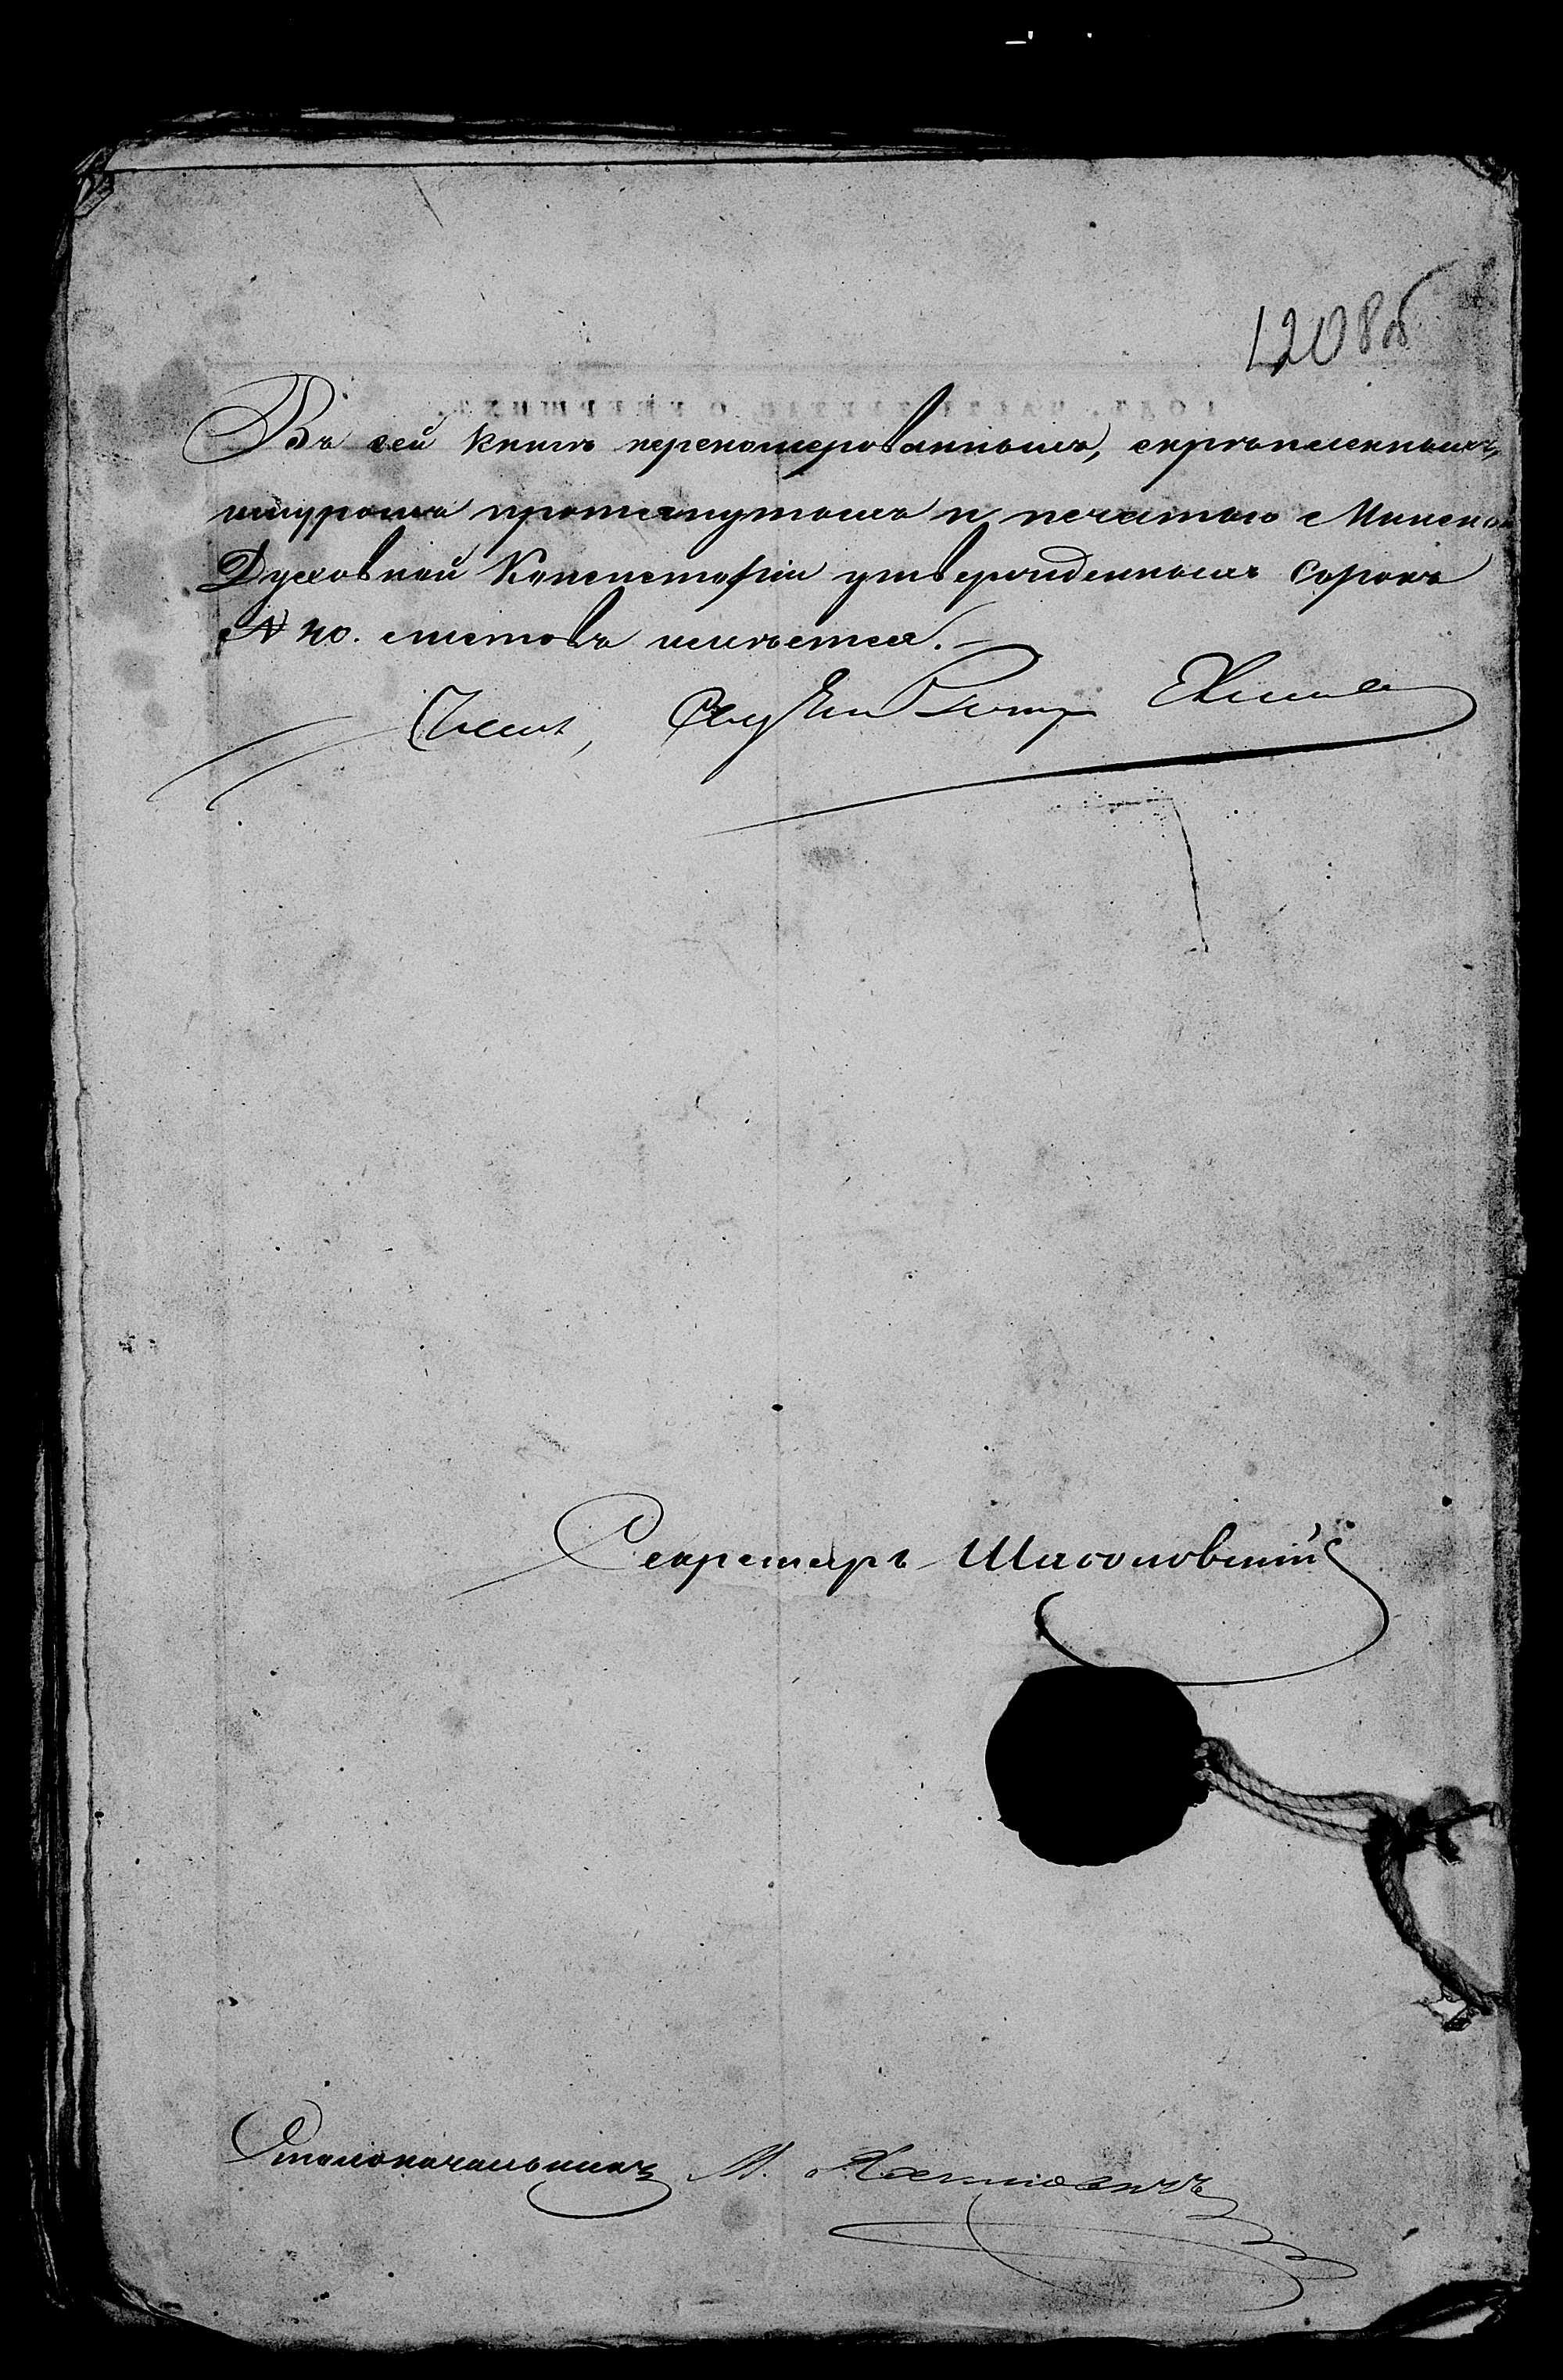 1208б
Въ сей книгѣ перекомерованныхъ, скрѣпленныхъ,
шнуромъ протянутыхъ и печатью Минской
Духовной Консисторіи утвержденныхъ сорокъ
№ 40. листовъ имѣется.
Членъ,
Секретарь
Столоначальникъ М.